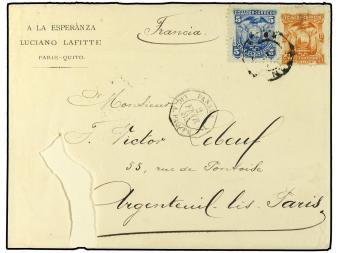 A LA ESPERANZA
LUCIANO LAFITTE
PARIS-QUITO.
Francia
5 5
Monsieur
J. Victor Lebeuf
55, rue de Pontoise
Argenteuil lis Paris